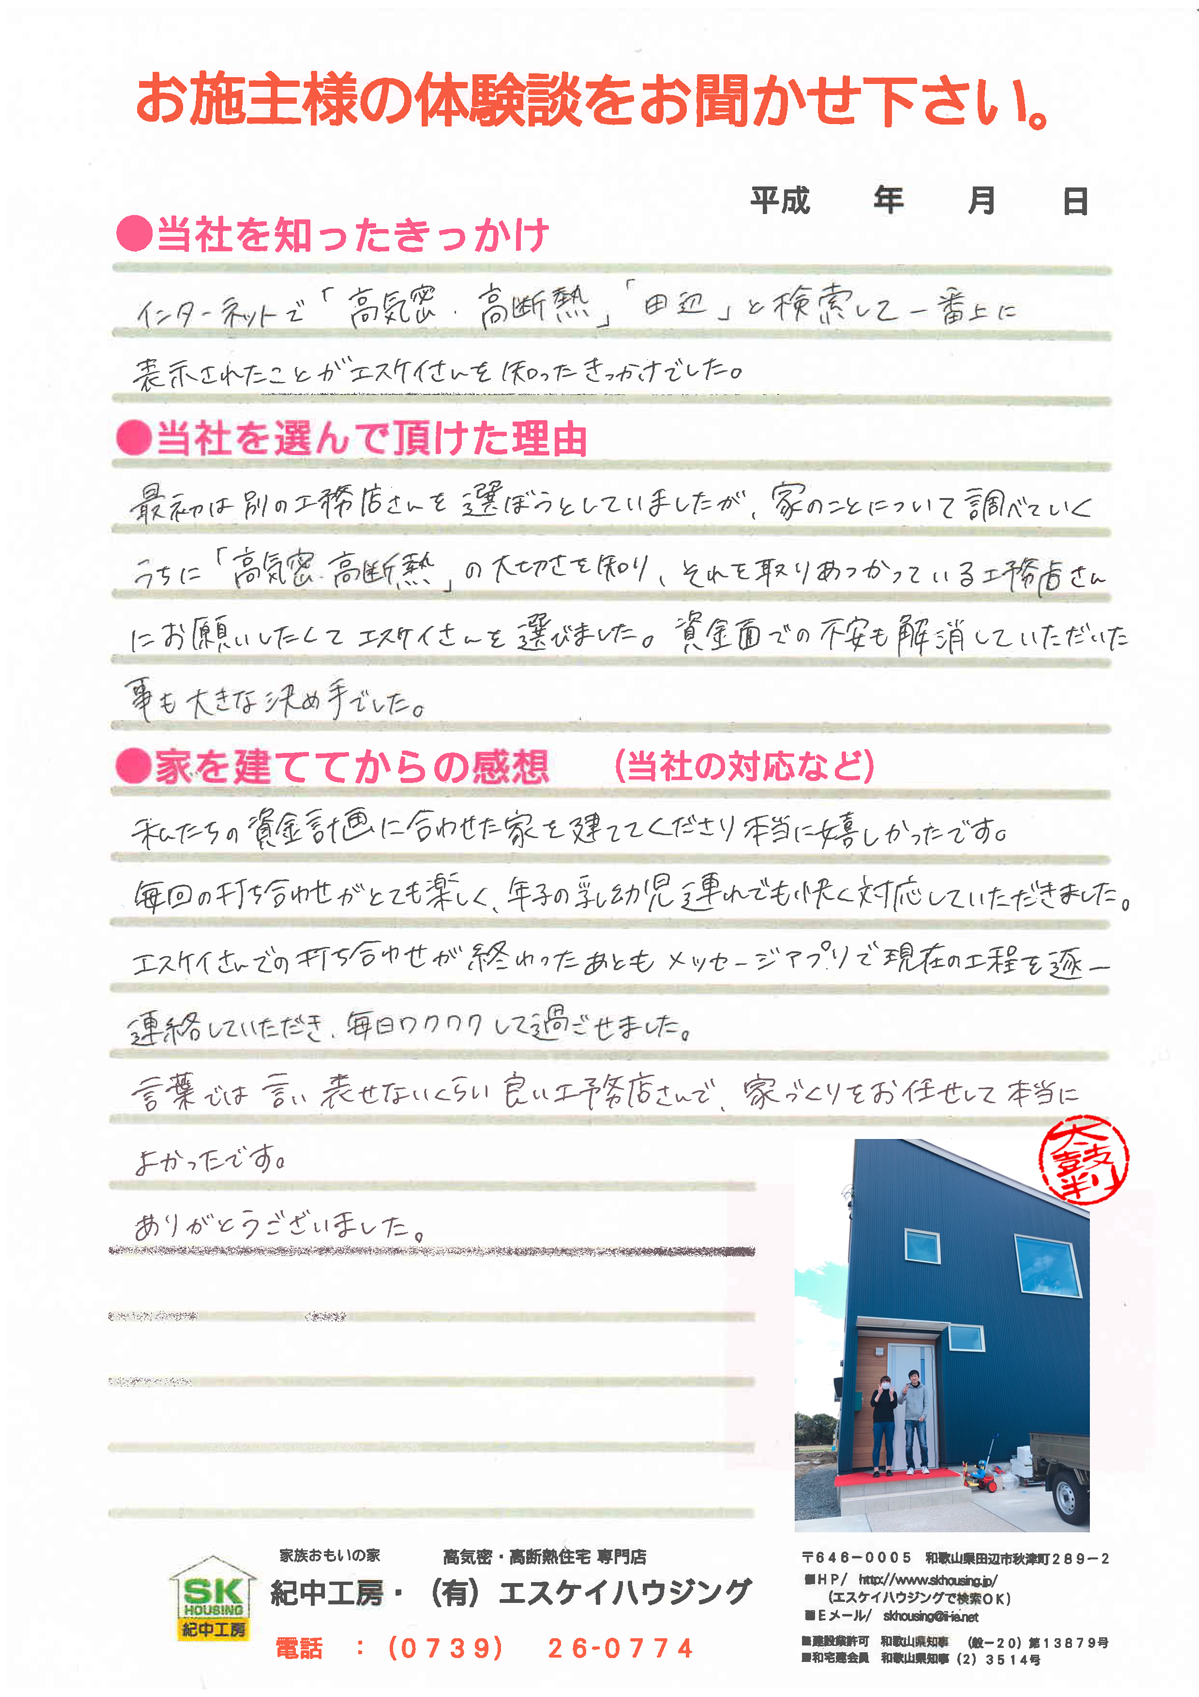 お施主様の体験談をお聞かせ下さい。
平成　年　月　日
●当社を知ったきっかけ
インターネットで「高気密・高断熱」「田辺」と検索して一番上に
表示されたことがエスケイさんを知ったきっかけでした。
●当社を選んで頂けた理由
最初は別の工務店さんを選ぼうとしていましたが、家のことについて調べていく
うちに「高気密・高断熱」の大切さを知り、それを取りあつかっている工務店さん
にお願いしたくてエスケイさんを選びました。資金面での不安も解消していただいた
事も大きな決め手でした。
●家を建ててからの感想　（当社の対応など）
私たちの資金計画に合わせた家を建ててくださり本当に嬉しかったです。
毎回の打ち合わせがとても楽しく、年子の乳幼児連れでも快く対応していただきました。
エスケイさんでの打ち合わせが終わったあともメッセージアプリで現在の工程を逐一
連絡していただき、毎日ワクワクして過ごせました。
言葉では言い表せないくらい良い工務店さんで、家づくりをお任せして本当に
よかったです。
ありがとうございました。
太鼓判
家族おもいの家　高気密・高断熱住宅 専門店
SK HOUSING 紀中工房
紀中工房・（有）エスケイハウジング
電話　：（０７３９）　２６-０７７４
〒６４６－０００５　和歌山県田辺市秋津町２８９－２
■ＨＰ/　http://www.skhousing.jp/
（エスケイハウジングで検索ＯＫ）
■Ｅメール/　skhousing@i-ie.net
■建設業許可　和歌山県知事　（般－２０）第１３８７９号
■和宅建会員　和歌山県知事（２）３５１４号